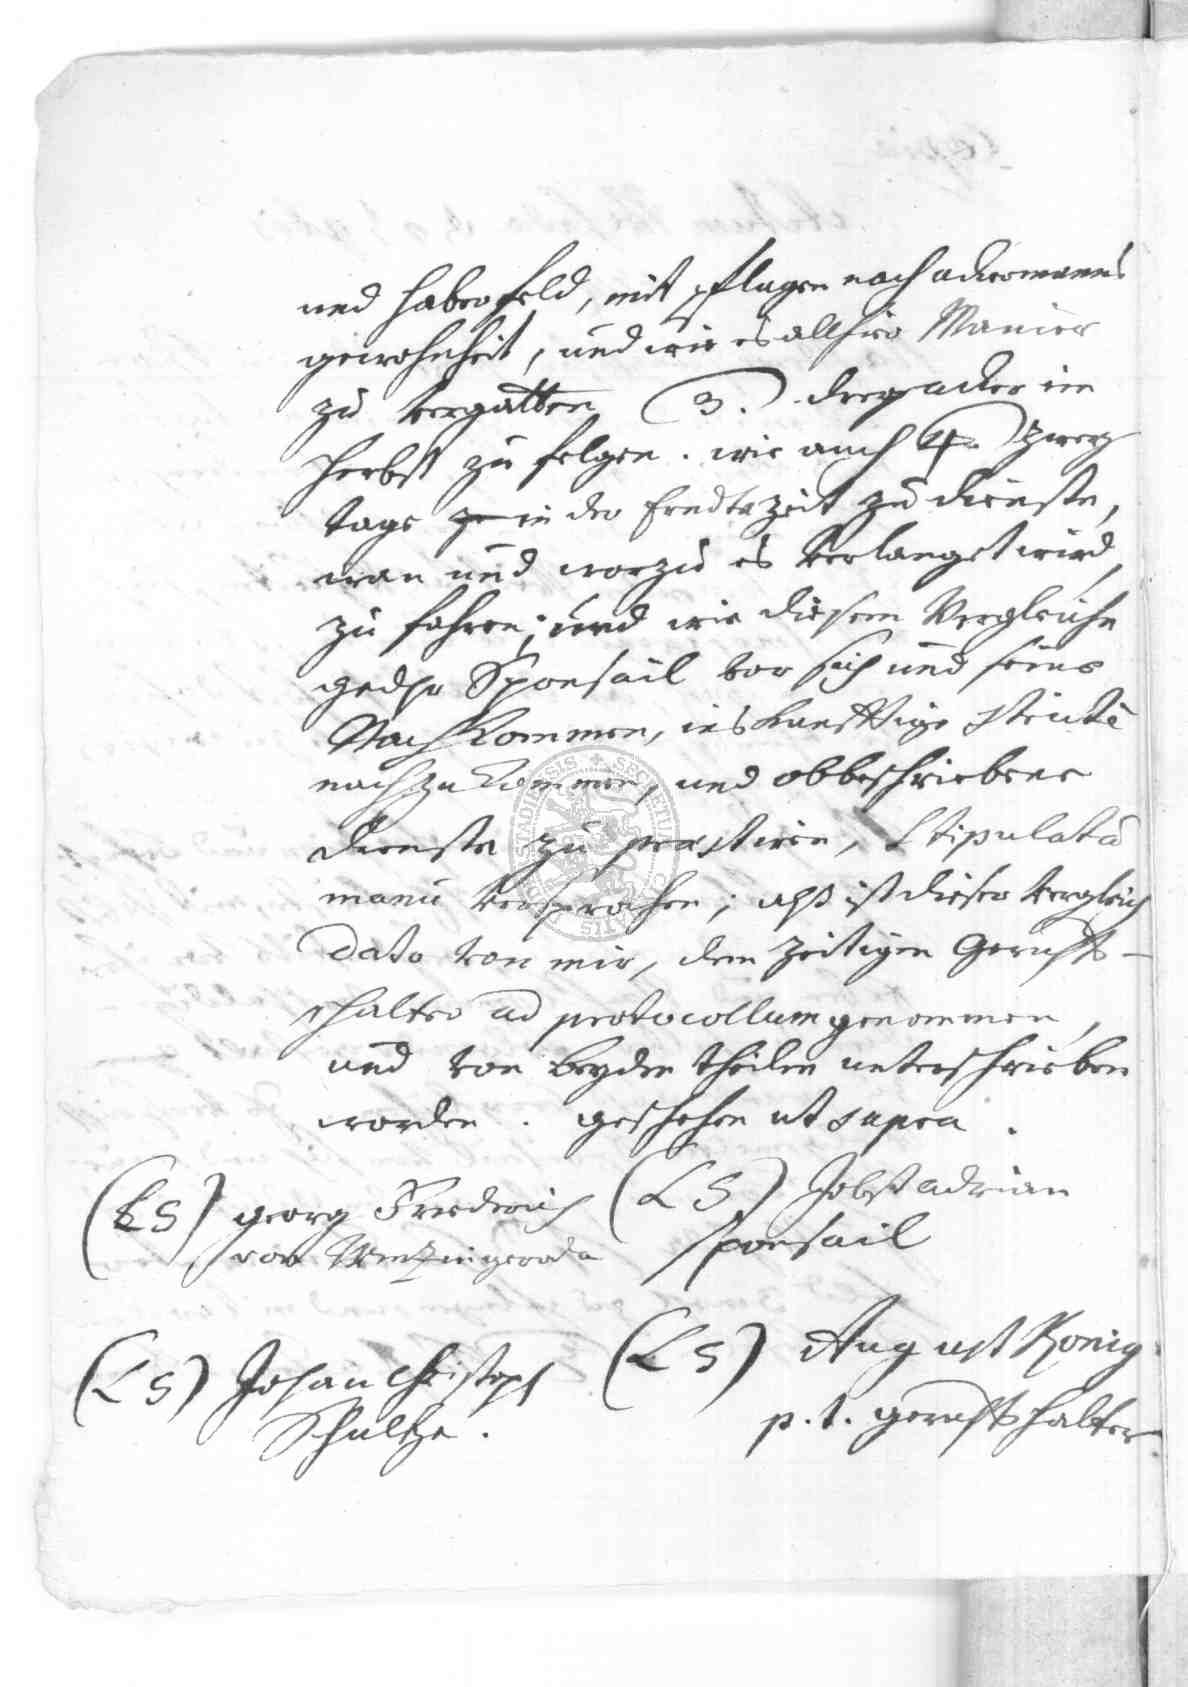 und haberfeld, mit pflugen nach ackermanns
gewohnheit, und wie es allhiro Manier
zu vergatten (3.) acker im
herbst zu felgen. wie auch (4.) zwerg
tage in der Erndtezeit zu dienste,
wan und worzu es verlanget wird,
zu fahren; und wie diesem Vergleiche
gedhr Sponsail vor sich und seine
Nachkommen, ins kunfftige stricte
nachzukommen, und obbeschriebene
dienste zu praestiren, Stipulata
manu versprochen; alß ist dieser vergleich
dato von mir, dem zeitigen Gerichts-
halter ad protocollum genommen,
und von beyden theilen unterschrieben
worden. geschehen ut supra.
(LS) georg Friederich
von Wintzingeroda
(LS) Jobst adrian
Sponsail
(LS) Johan Christoph
Schultze.
(LS) August König
p.t. gerichtshalter.